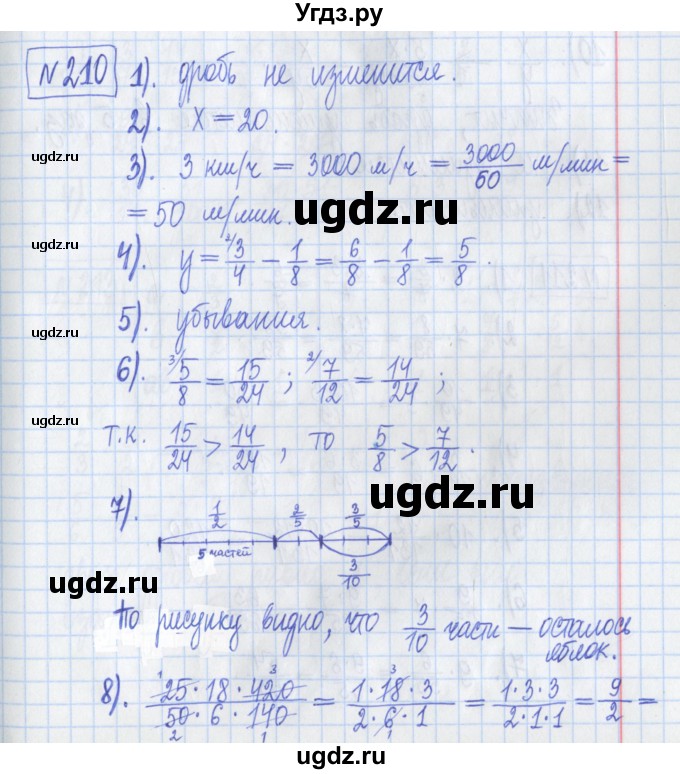 Угдз.ру
№210 1). дробь не изменится.
2). X = 20.
ugdz.ru
3). 3 км/ч = 3000 м/ч = 3000/60 м/мин =
= 50 м/мин.
ugdz.ru
ugdz.ru
4). y = 2/ 3/4 − 1/8 = 6/8 − 1/8 = 5/8.
5). убывания.
ugdz.ru
6). 3/ 5/8 = 15/24 ; 2/ 7/12 = 14/24 ;
ugdz.ru
т.к. 15/24 > 14/24 , то 5/8 > 7/12.
ugdz.ru
7). 1/2 2/5 3/5
5 частей
3/10
ugdz.ru
По рисунку видно, что 3/10 части — осталось
яблок.
ugdz.ru
8). 25 · 18 · 420 / 50 · 6 · 140 = 1 · 18 · 3 / 2 · 6 · 1 = 1 · 3 · 3 / 2 · 1 · 1 = 9/2 =
ugdz.ru
ugdz.ru